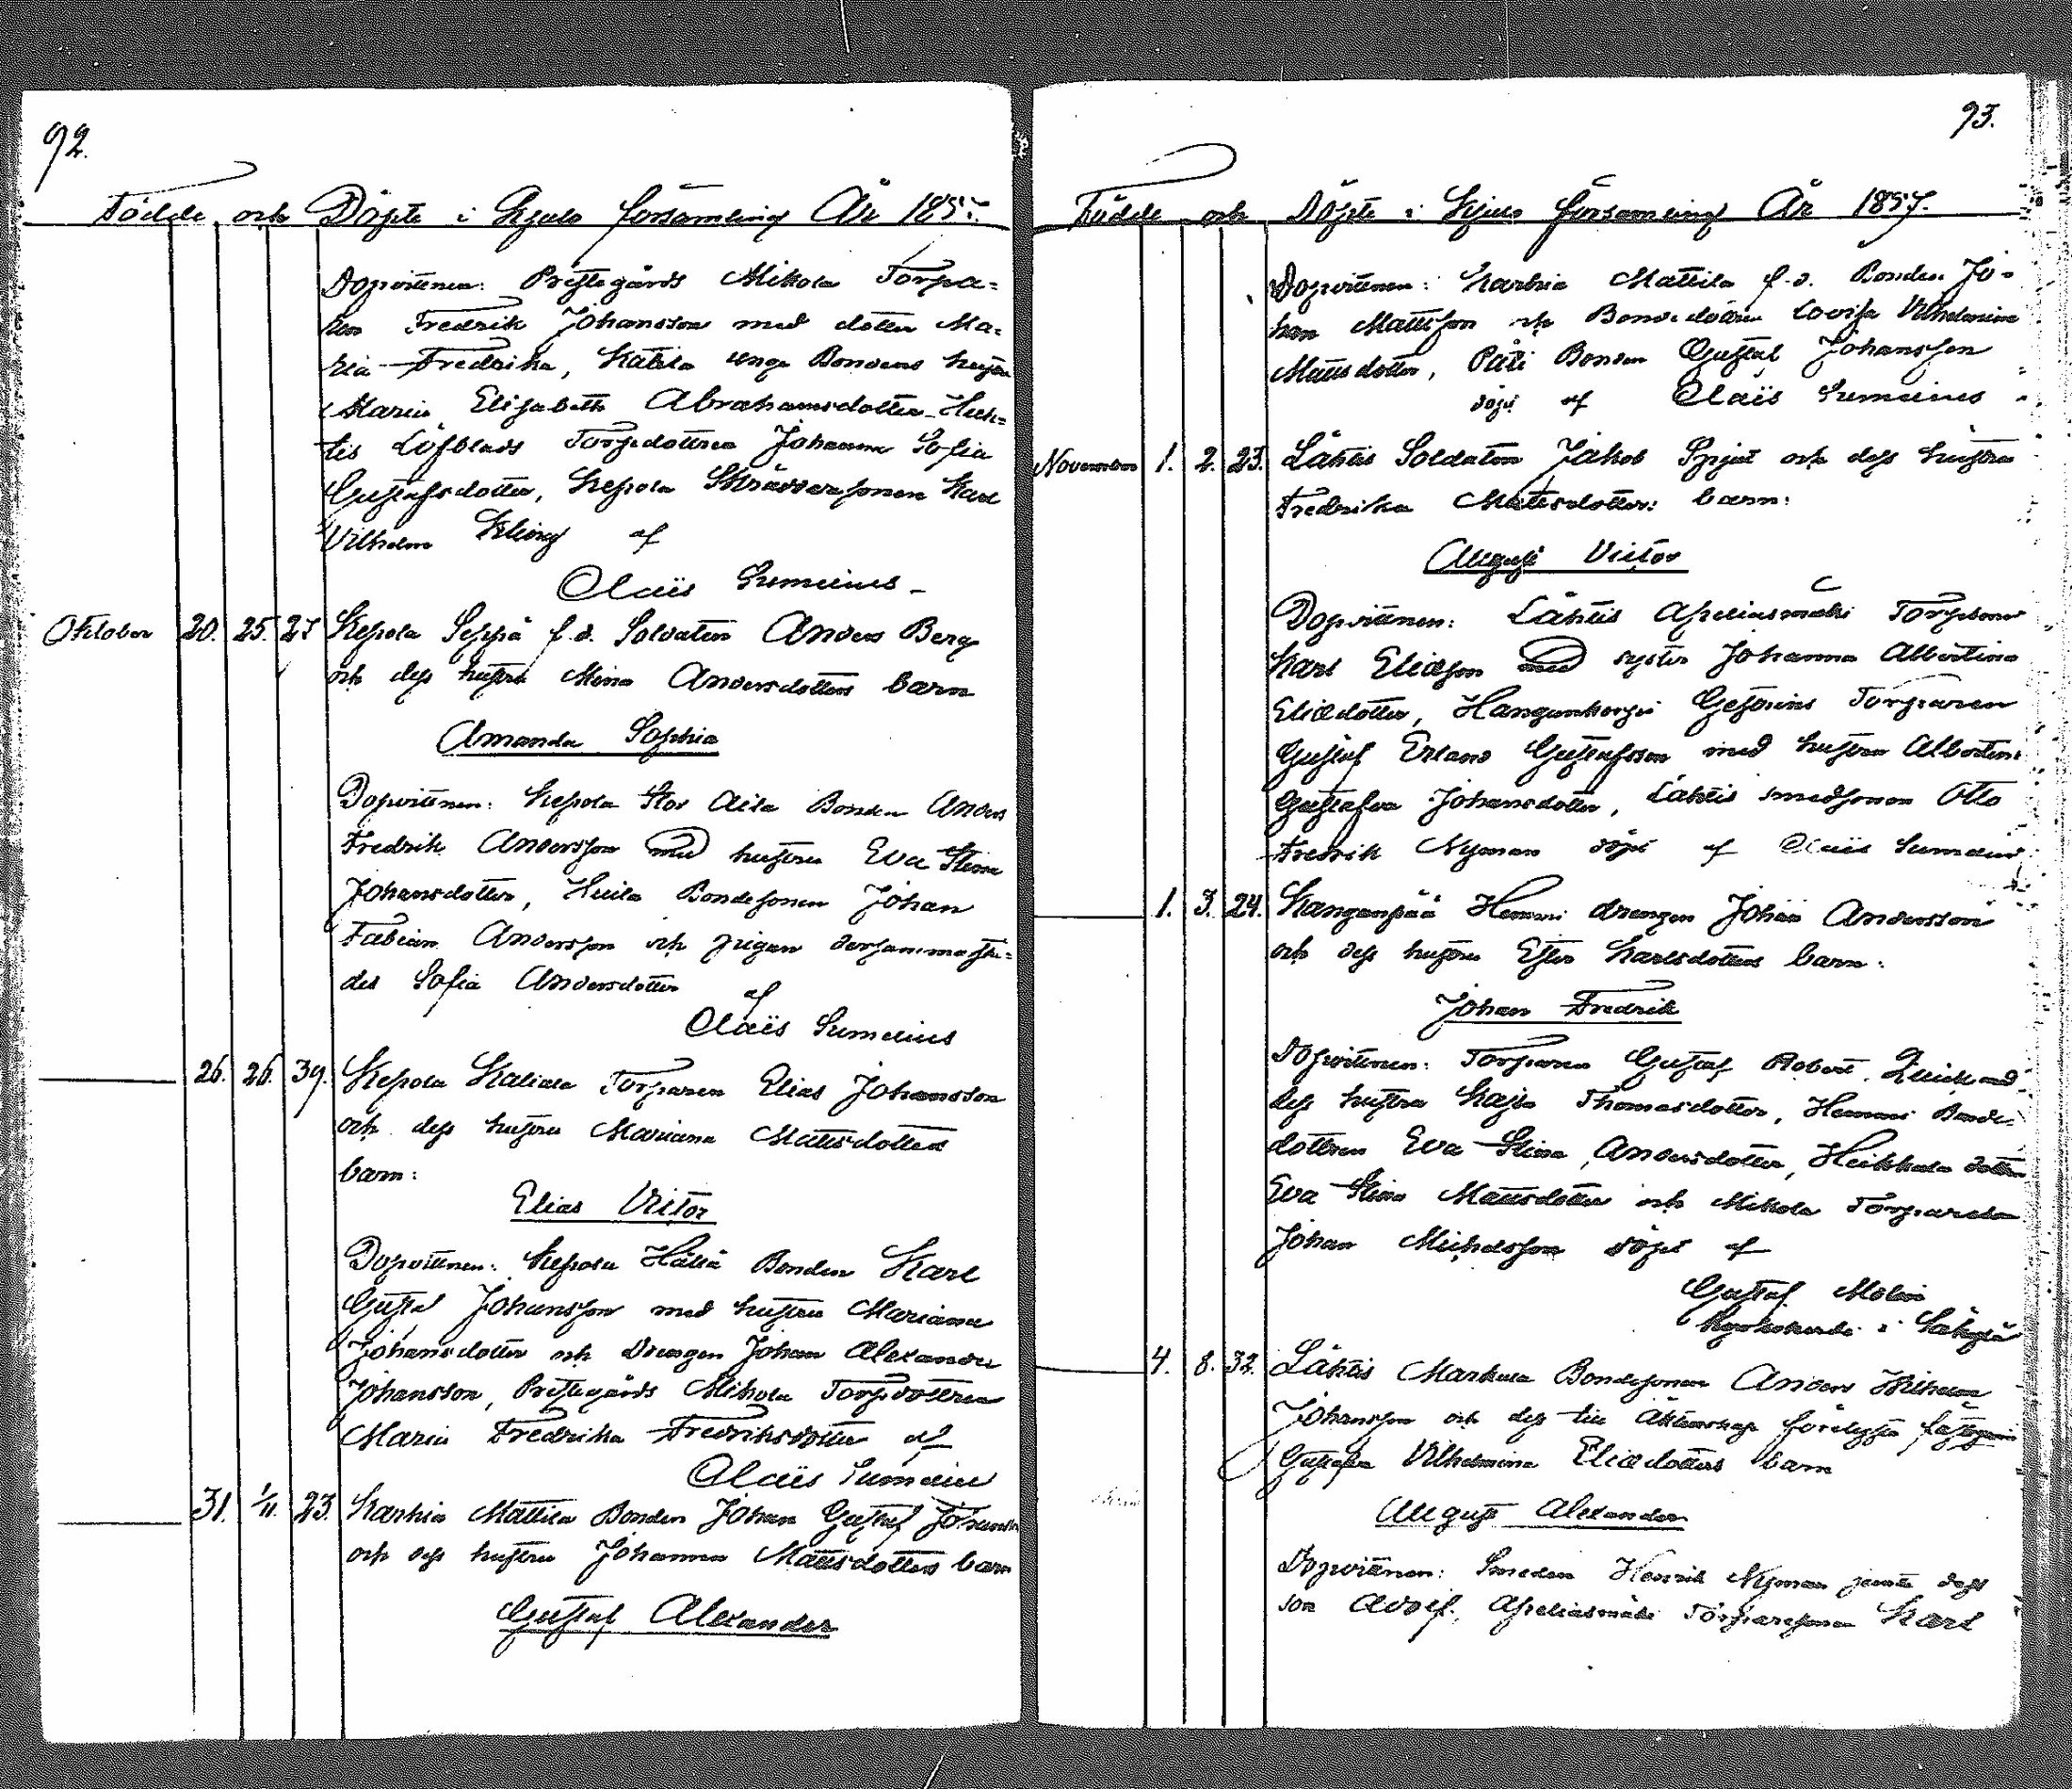 92.
Födde och Döpte i Kjulo församling År 1857.
Dopvittnen: Prestegårds Mikola Torpa=
ren Fredrik Johansson med dotter Ma=
ria Fredrika, Kattila unga Bondens hustru
Maria Elisabeth Abrahamsdotter
Löfblads Torpdottren Johanna Sofia
Gustafsdotter, Kepola Skräddaresonen Karl
Vilhelm af
Olaus Sumelius
Oktober 20. 25. 27 Kepola Seppä f.d. Soldaten Anders Berg
och dess hustru Mina Andersdotters barn
Amanda Sophia
Dopvittnen: Kepola Stor Bonden Anders
Fredrik Andersson med hustru Eva Stina
Johansdotter, Bondesonen Johan
Fabian Andersson och pigan dersammastä=
des Sofia Andersdotter
af
Olaus Sumelius
26. 26. 39. Kepola Torparen Elias Johansson
och dess hustru Mariana Mattsdotters
barn:
Elias Victor
Dopvittnen: Kepola Bonden Karl
Gustaf Johansson med hustru Mariana
Johansdotter och Drengen Johan Alexander
Johansson, Prestegårds Mikola Torpdottren
Maria Fredrika Fredriksdotter af
Olaus Sumelius
31. 1/11. 23. Karhia Mattila Bonden Johan Gustaf
och dess hustru Johanna Mattsdotters barn
Gustaf Alexander
93.
Födde och Döpte i Kjulo församling År 1857.
Dopvittnen: Karhia Mattila f.d. Bonden Jo=
han Mattsson och Bondedottren Lovisa Vilhelmina
Mattsdotter, Bonden Gustaf Johansson
döpt af Olaus Sumelius
November 1. 2. 23. Lähtis Soldaten Jakob Spjut och dess hustru
Fredrika Mattsdotters barn:
August Victor
Dopvittnen: Lähtis Torpson
Karl Eliasson med syster Johanna Albertina
Eliædotter, Torparen
Gustaf Erland Gustafsson med hustru Albertina
Gustafva Johansdotter, Lähtis smedsonen Otto
Fredrik Nyman döpt af Olaus Sumelius
1. 3. 24. Kanganpää Hemmi drengen Johan Andersson
och dess hustru Ester Karlsdotters barn:
Johan Fredrik
Dopvittnen: Torparen Gustaf Robert med
dess hustru Kajsa Thomasdotter, Hemmi Bonde=
dottren Eva Stina Andersdotter, Heikkola dotter
Eva Stina Mattsdotter och Mikola Torparen
Johan Michelsson döpt af
Gustaf Molin
Kyrkoherde i Säkylä
4. 8. 32. Lähtis Markula Bondesonen Anders Vilhelm
Johansson och dess till äktenskap förelysta fästeqvinna
Gustafva Vilhelmina Eliædotters barn
August Alexander
Dopvittnen: Smeden Henrik Nyman jemte dess
son Adolf, Torparesonen Karl